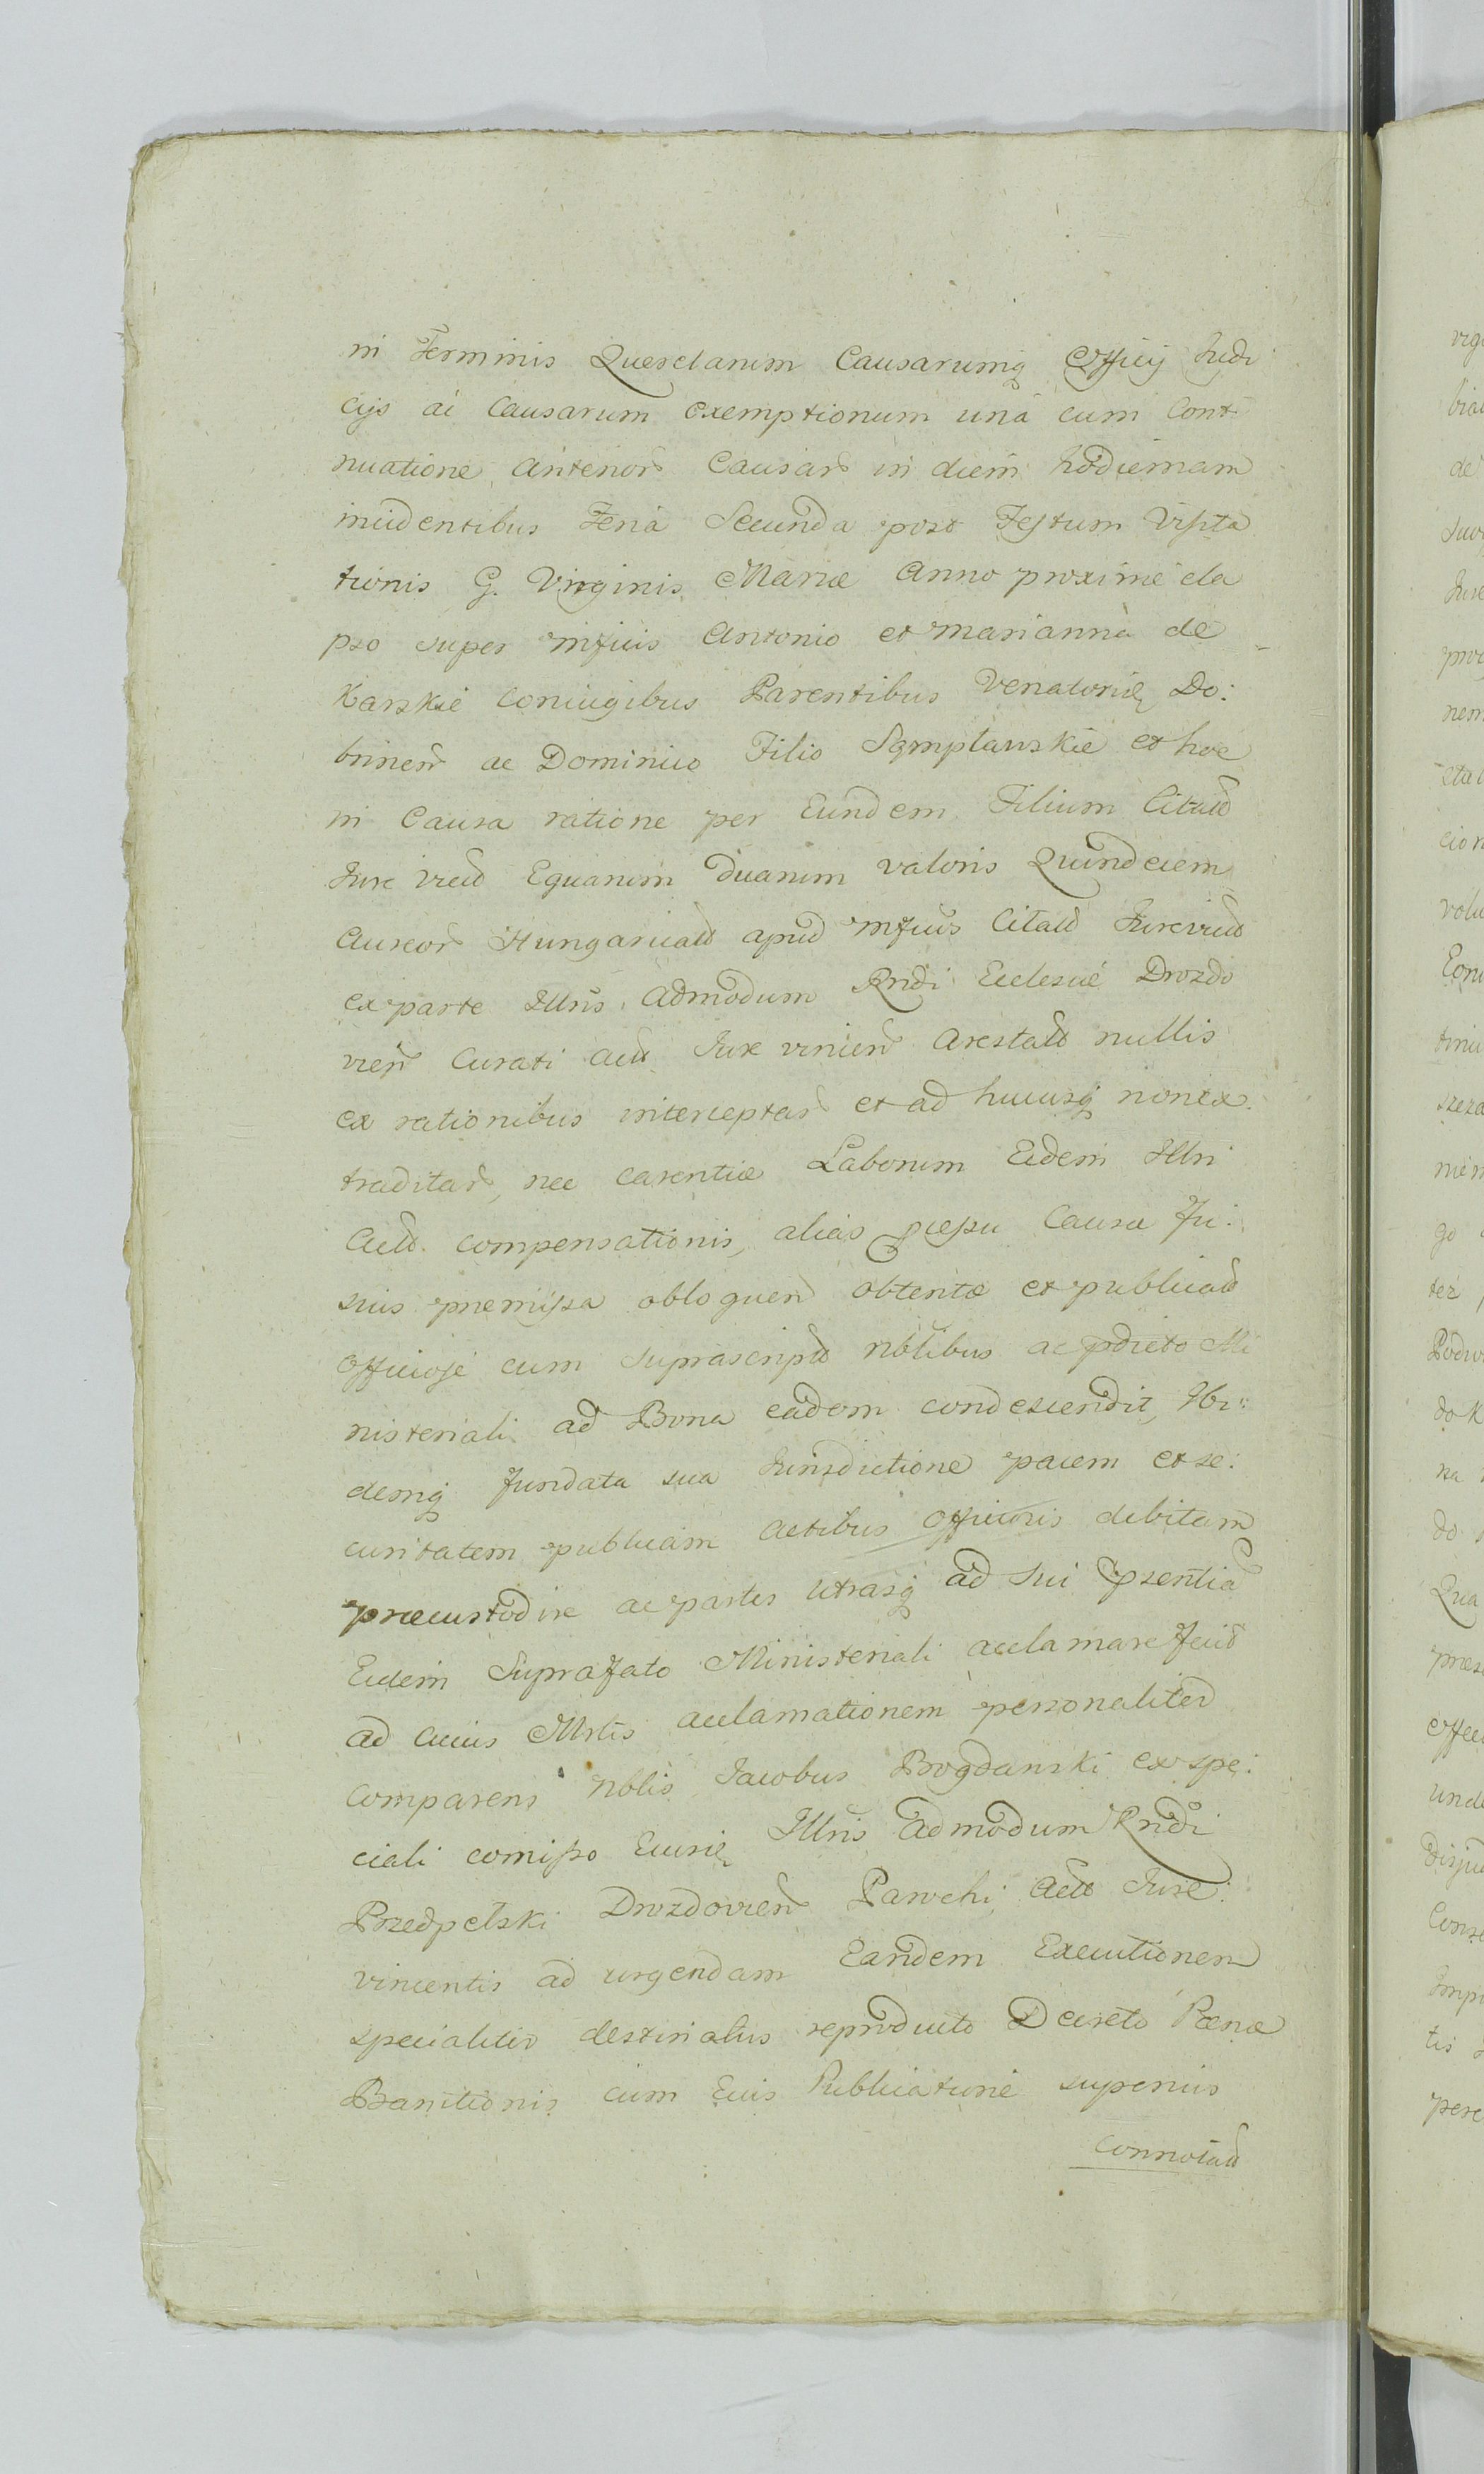 in Terminis Querelarum Causarumq̨ Officij Judi
cijs ac Causarum exemptionum una cum Conti
nuatione anterior Causar in diem hodiernam
incidentibus Feria Secunda post Festum Visita
tionis G. Virginis Mariæ Anno proxime ela
pso super infcis Antonio et Marianna de
Karskie Coniugibus Parentibus Venatoriæ Do:
brinen ac Dominico Filio Sąmplawskie et hoc
in Causa ratione per Eundem Filium Citato
Jure victo Equarum duarum valoris Quindecim
Aureor Hungarical apud infcus Citato Jurevicto
ex parte Illris Admodum Rndi Ecclesiæ Drozdo
vien Curati act Jure vincen arestato nullis
ex rationibus interceptar et ad hucusq̨ non ex
traditar, nec carentiæ Laborum Eidem Illri
Act. compensationis, alias pcessu Causæ Fu:
sius præmissa obloquen obtentæ et publicat
officiose cum suprascript nblibus ac pdicto Mi
nisteriali ad Bona eadem condescendit, Ibi:
demq̨ fundata sua Jurisdictione pacem et se:
curitatem publicam actibus officiosis debitam
præcustodire ac partes utrasq̨ ad sui psentiã
Eidem Suprafato Ministeriali acclamare fecit
ad cuius Mrlis acclamationem personaliter
Comparens nblis Jacobus Bogdanski ex spe:
ciali comisso Eiusdẽ Illris Admodum Rndi
Przedpełski Drozdovien Parochi Act Jure:
vincentis ad urgendam Eandem Executionem
specialiter destinatus reproducto Decreto Pœnæ
Banitionis cum Eius Publicatione superius
connotat